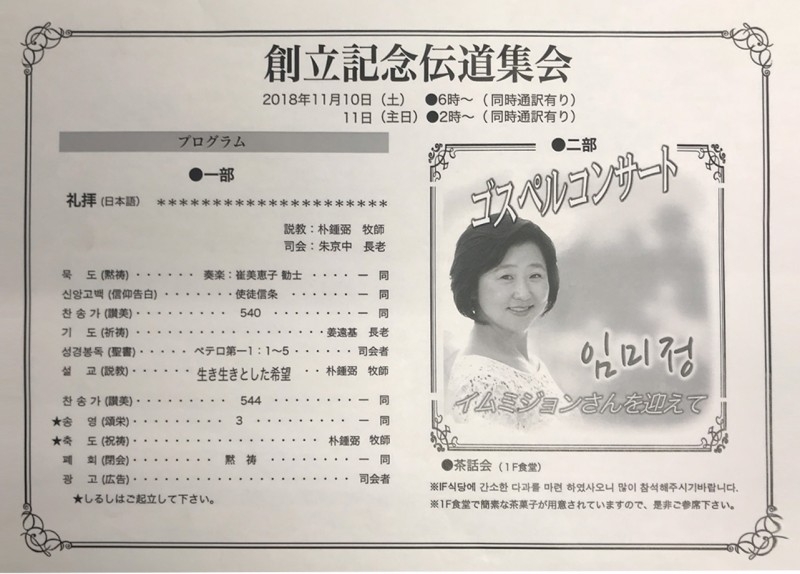 創立記念伝道集会
2018年11月10日（土） ●6時～（同時通訳有り）
11日（主日）●2時～（同時通訳有り）
プログラム
●一部
礼拝（日本語） ＊＊＊＊＊＊＊＊＊＊＊＊＊＊＊＊＊＊＊＊＊
説教：朴鍾弼 牧師
司会：朱京中 長老
묵 도 (黙祷) ・・・・・・ 奏楽：崔美恵子 勧士 ・・・・ 一 同
신앙고백 (信仰告白) ・・・・・・・ 使徒信条 ・・・・・・・・ 一 同
찬 송 가 (讃美) ・・・・・・・・・ 540 ・・・・・・・・・ 一 同
기 도 (祈祷) ・・・・・・・・・・・・・・・・・・ 姜遠基 長老
성경봉독 (聖書) ・・・・・ ペテロ第一1：1～5 ・・・・・・・ 司会者
설 교 (説教) ・・・・・ 生き生きとした希望 ・・ 朴鍾弼 牧師
찬 송 가 (讃美) ・・・・・・・・・ 544 ・・・・・・・・・ 一 同
★송 영 (頌栄) ・・・・・・・・・ 3 ・・・・・・・・・・ 一 同
★축 도 (祝祷) ・・・・・・・・・・・・・・・・・・ 朴鍾弼 牧師
폐 회 (閉会) ・・・・・・・・ 黙 祷 ・・・・・・・・・・ 一 同
광 고 (広告) ・・・・・・・・・・・・・・・・・・・・・ 司会者
★しるしはご起立して下さい。
●二部
ゴスペルコンサート
임미정
イムミジョンさんを迎えて
●茶話会（1F食堂）
※IF식당에 간소한 다과를 마련 하였사오니 많이 참석해주시기바랍니다.
※1F食堂で簡素な茶菓子が用意されていますので、是非ご参席下さい。